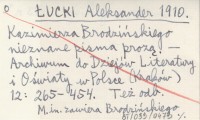 ŁUCKI Aleksander 1910.
Kazimierza Brodzińskiego
nieznane pisma prozą —
Archiwum do Dziejów Literatury
i Oświaty w Polsce (Kraków)
12: 265-454. Też odb.
M.in. zawiera Brodzińskiego